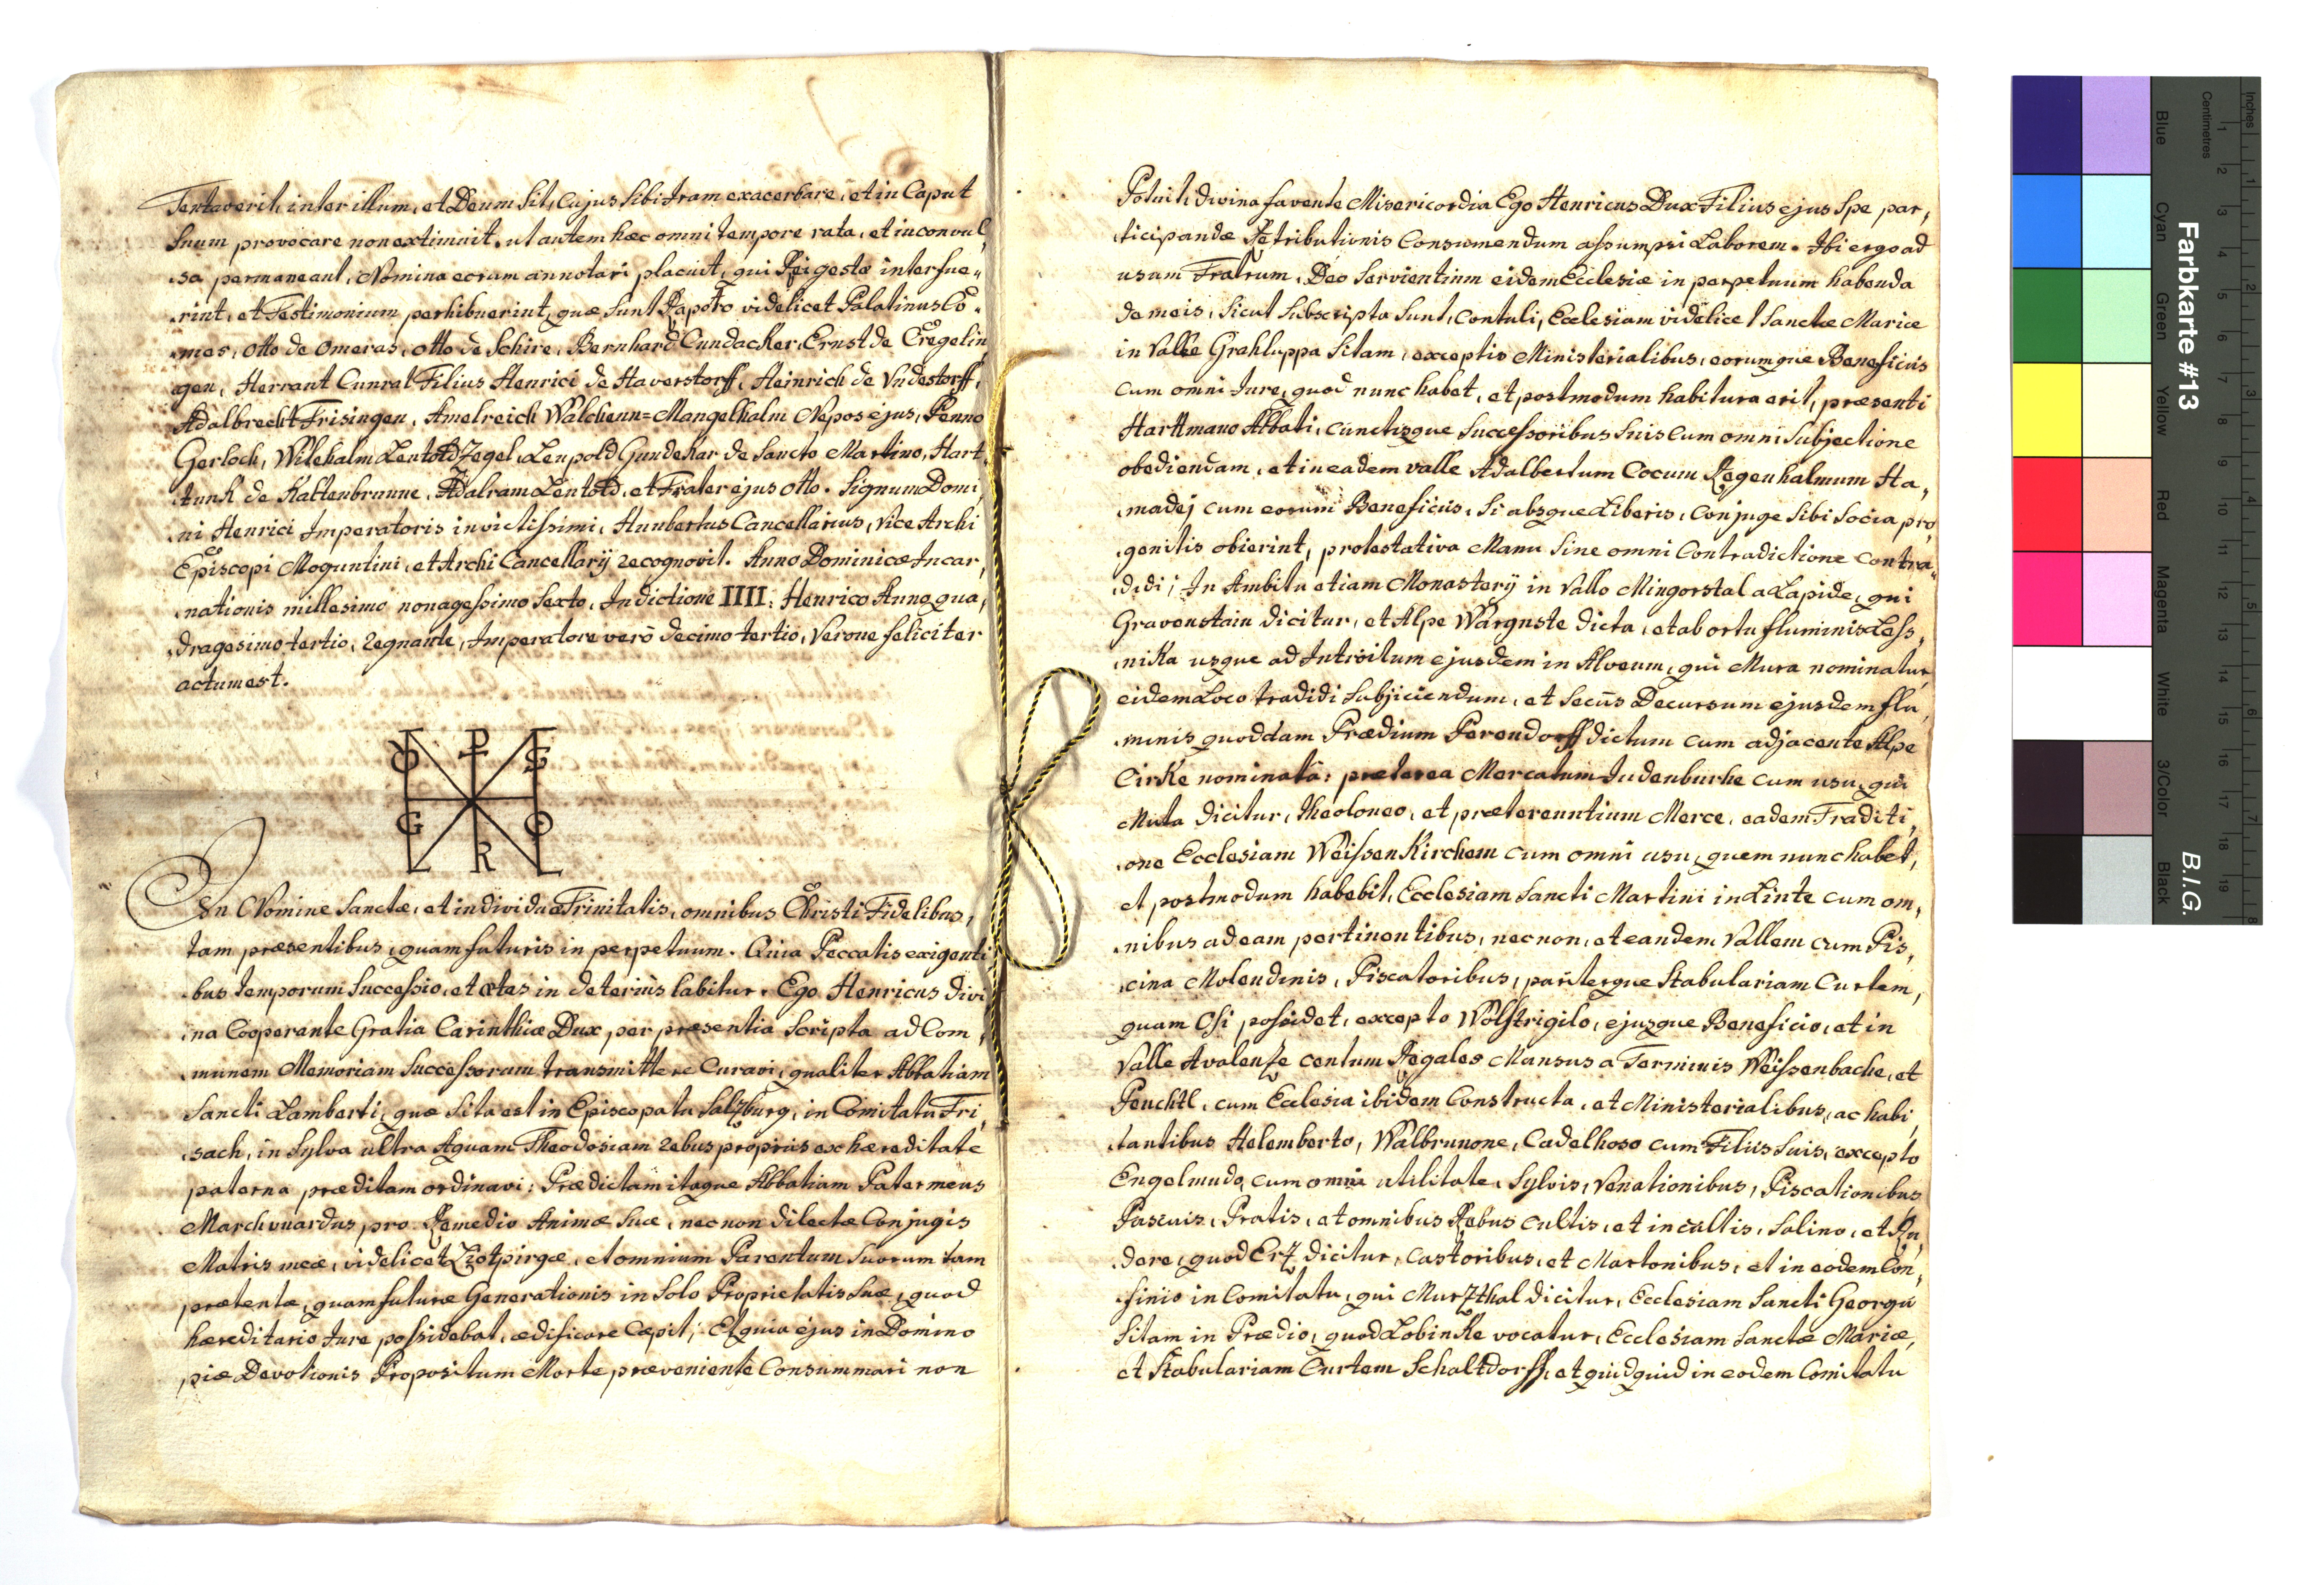 Tentaverit, inter illum, et Deum sit, Cujus sibi Iram exacerbare, et in Caput
Suum provocare non extimuit. ut autem hæc omni tempore rata, et inconvul,
sa permaneant, Nomina eorum annotari placuit, qui Rei gestæ interfue,,
rint, et Testimonium perhibuerint, quæ sunt Rapoto videlicet Palatinus Co,
mes, Otto de Omeras, Otto de Schire, Bernhard Cundacker, Ernst de Cregelin,
gen, Herrant Cunrat Filius Henrici de Haverstorff, Heinrich de Undestorff,
Adalbrecht Frisingen, Amelreich Walchenn=Mangelhalm Nepos ejus, Penno
Gerloch, Wilehalm Leutold Zegel, Leupold Gundekar de Sancto Martino, Hart,
tunk de Kaltenbrunne, Adalram Leutold, et Frater ejus Otto. Signum Domi,
ni Henrici Imperatoris invictissimi, Hunbertus Cancellarius, vice Archi
Episcopi Moguntini, et Archi Cancellarij recognovit. Anno Dominicæ Incar,
nationis millesimo nonagessimo sexto, Indictione IIII, Henrico Anno qua,
dragesimo tertio, regnante, Imperatore verò decimo tertio, Verone feliciter
actum est.
In Nomine Sanctæ, et individuæ Trinitatis, omnibus Christi Fidelibus,
tam præsentibus, quam futuris in perpetuum. Quia Peccatis exigenti
bus temporum Successio, et ætas in deteriùs labitur. Ego Henricus divi
na Cooperante Gratia Carinthiæ Dux per præsentia Scripta ad Com,
munem Memoriam Successorum transmittere Curavi, qualiter Abbatiam
Sancti Lamberti, quæ sita est in Episcopatu Salzburg, in Comitatu Fri,
sach, in Sylva ultra Aquam Theodosiam rebus propriis ex hæreditate
paterna præditam ordinavi: Prædictam itaque Abbatiam Pater meus
Marchvuardus, pro Remedio Animæ suæ, necnon dilectæ Conjugis
Matris meæ, videlicet Liotpirgæ, et omnium Parentum Suorum tam
prætentæ, quam futuræ Generationis in Solo Proprietatis suæ, quod
hæreditario Jure possidebat, ædificare Cæpit; Et quia ejus in Domino
piæ Devotionis Propositum Morte præveniente Consummari non
Potuit, divina favente Misericordia Ego Henricus Dux Filius ejus Spe par,
ticipandæ Retributionis Consumendum assumpsi Laborem. Ibi ergo ad
usum Fratrum, Deo Servientium eidem Ecclesiæ in perpetuum habenda
de meis, sicut Subscripta sunt, Contuli, Ecclesiam videlicet Sanctæ Mariæ
in Valle Grahluppa Sitam, exceptis Ministerialibus, eorumque Beneficiis
cum omni Jure, quod nunc habet, et postmodum habitura erit, præsenti
Harttmano Abbati, cunctisque Successoribus Suis Cum omni Subjectione
obediendam, et in eadem valle Adalbertum Cocum Regenhalmum Ha,
madej cum eorum Beneficiis, Si absque Liberis, Conjuge Sibi Socia pro
genitis obierint, protestativa Manu Sine omni Contradictione Contra,
didi; In Ambitu etiam Monasterij in Vallo Mingorstal a Lapide, qui
Gravenstain dicitur, et Alpe Wargnste dicta, et ab ortu fluminis Less,
nika usque ad Introitum ejusdem in Alveum, qui Mura nominatur,
eidem Loco tradidi Subjiciendum, et Secùs Decursum ejusdem flu,
minis quoddam Prædium Perendorff dictum cum adjacente Alpe
Cirke nominatâ: præterea Mercatum Judenburhe cum usu, qui
Muta dicitur, theoloneo, et prætereuntium Merce, eadem Traditi,
one Ecclesiam Weissenkirchem cum omni usu, quem nunc habet,
et postmodum habebit, Ecclesiam Sancti Martini in Linte cum om,
nibus ad eam pertinentibus, necnon, et eandem Vallem cum Pis,
cina Molendinis, Piscatoribus, pariterque Stabulariam Curtem,
quam Osi possidet, excepto Wolstrigilo, ejusque Beneficio, et in
Valle Avalenze centum Regales Mansus a Terminis Weissenbache, et
Peuchtl, cum Ecclesia ibidem Constructa, et Ministerialibus, ac habi,
tantibus Helemberto, Walbrunone, Cadelhoso cum Filiis Suis, excepto
Engelmudo, cum omni utilitate, Sylvis, Venationibus, Piscationibus
Pascuis, Pratis, et omnibus Rebus cultis, et incultis, Salino, et Ru,
dere, quod Erz dicitur, Castoribus, et Martonibus, et in eodem Con,
finio in Comitatu, qui Murzthal dicitur, Ecclesiam Sancti Georgii
Sitam in Prædio, quod Lobinke vocatur, Ecclesiam Sanctæ Mariæ,
et Stabulariam Curtem Schaltdorff, et quidquid in eodem Comitatu
Farbkarte #13
B.I.G.
Inches
Centimetres
Blue
Cyan
Green
Yellow
Red
Magenta
White
3/Color
Black